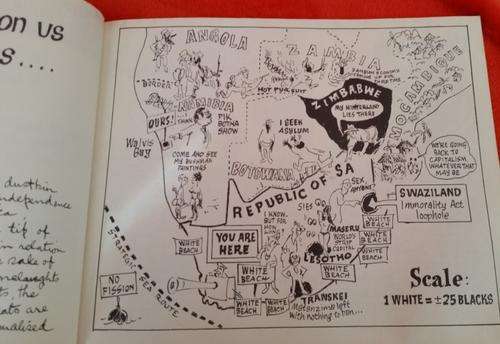 ON US
S....
dustbin
independence
tip of
in relation
sale of
onslaught
ts, the
ats are
nalised
ANGOLA
ZAMBIA
MOCAMBIQUE
"BORDER"
NAMIBIA
OURS!
THE
PIK
BOTHA
SHOW
Walvis
Bay
HOT PURSUIT
ZIMBABWE
MY MOTHERLAND
LIES THERE
I SEEK
ASYLUM
COME AND SEE
MY BUSHMAN
PAINTINGS
BOTSWANA
WE'RE GOING
BACK TO
CAPITALISM
WHATEVER THAT
MAY BE
REPUBLIC OF SA
SEX,
ANYONE?
SWAZILAND
Immorality Act
loophole
I KNOW,
BUT FOR
HOW
SIES
MASERU
WORLD'S
STRIP
CAPITAL
LESOTHO
WHITE
BEACH
YOU ARE
HERE
WHITE
BEACH
WHITE
BEACH
WHITE
BEACH
WHITE
BEACH
WHITE
BEACH
WHITE
BEACH
TRANSKEI
Matanzima left
with nothing to ban...
STRATEGIC SEA ROUTE
NO
FISSION
Scale:
1 WHITE = ±25 BLACKS